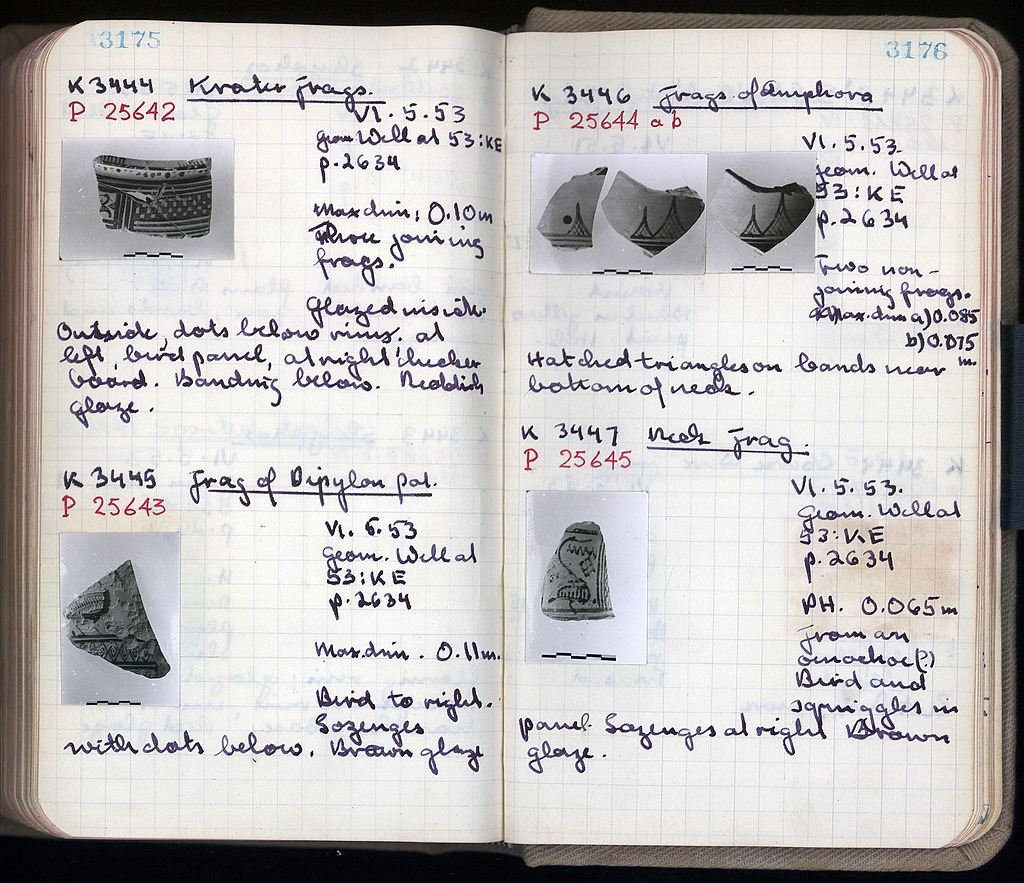 3175
K 3444 Krater frags.
P 25642
VI. 5.53
Geom. Well at 53:KE
p. 2634
Max.dim. 0.10m
Three joining
frags.
Glazed inside.
Outside, dots below rim. at
left, bird panel, at right checker
board. Banding below. Reddish
glaze.
K 3445 Frag of Dipylon pot.
P 25643
VI. 6.53
Geom. Well at
53:KE
p. 2634
Max.dim. 0.11m.
Bird to right.
Lozenges
with dots below. Brown glaze
3176
K 3446 Frags of Amphora
P 25644 a b
VI. 5.53.
Geom. Well at
53:KE
p. 2634
Two non-
joining frags.
Max.dim a) 0.085
b) 0.075
m.
Hatched triangles on bands near
bottom of neck.
K 3447 Neck Frag.
P 25645
VI. 5.53.
Geom. Well at
53:KE
p. 2634
PH. 0.065m
From an
oinochoe(?)
Bird and
squiggles in
panel. Lozenges at right Brown
glaze.